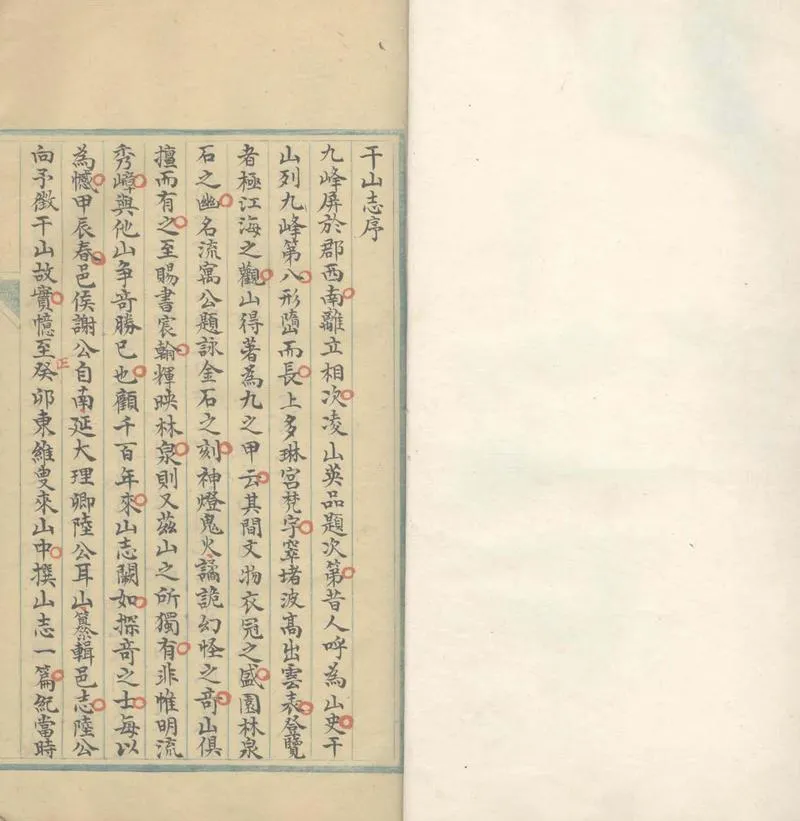 干山志序
九峰屏於郡西南離立相次凌山英品題次第昔人呼為山史干
山列九峰第八形墮而長上多琳宮梵宇窣堵波高出雲表登覽
者極江海之觀山得著為九之甲云其間文物衣冠之盛園林泉
石之幽名流寓公題詠金石之刻神燈鬼火譎詭幻怪之奇山俱
擅而有之至賜書宸翰輝映林泉則又茲山之所獨有非惟明流
秀嶂與他山争奇勝已也顧千百年來山志闕如探奇之士每以
為憾甲辰春邑侯謝公自南延大理卿陸公耳山纂輯邑志陸公
向予徵干山故實憶至癸卯東維叟來山中撰山志一篇紀當時
正